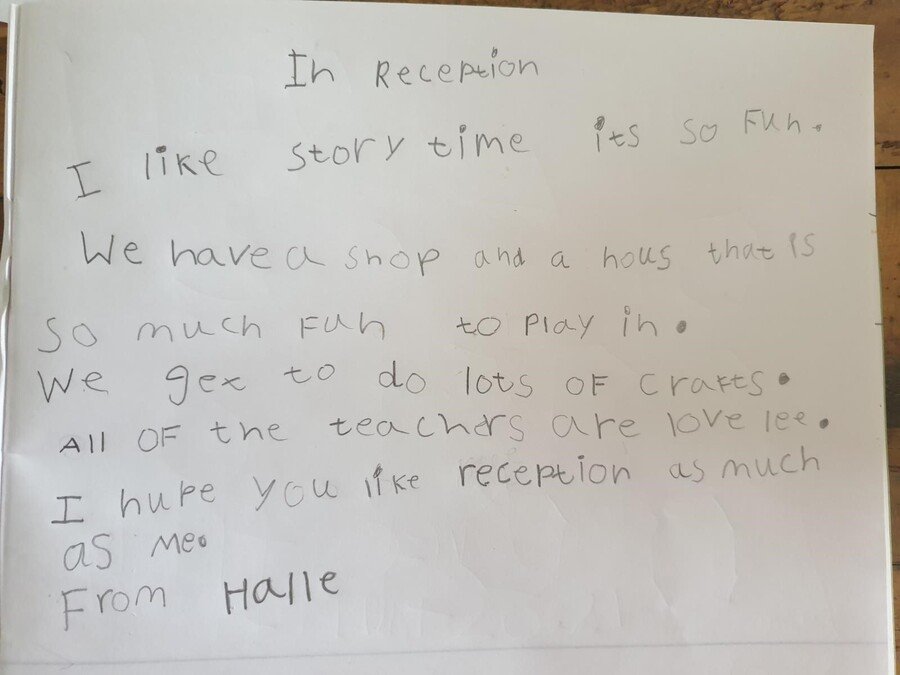 In Reception
I like story time its so Fun.
We have a shop and a hous that is
So much Fun to Play in.
We get to do lots oF craFts.
All OF the teachers are love lee.
I hupe you like reception as much
as me.
From Halle